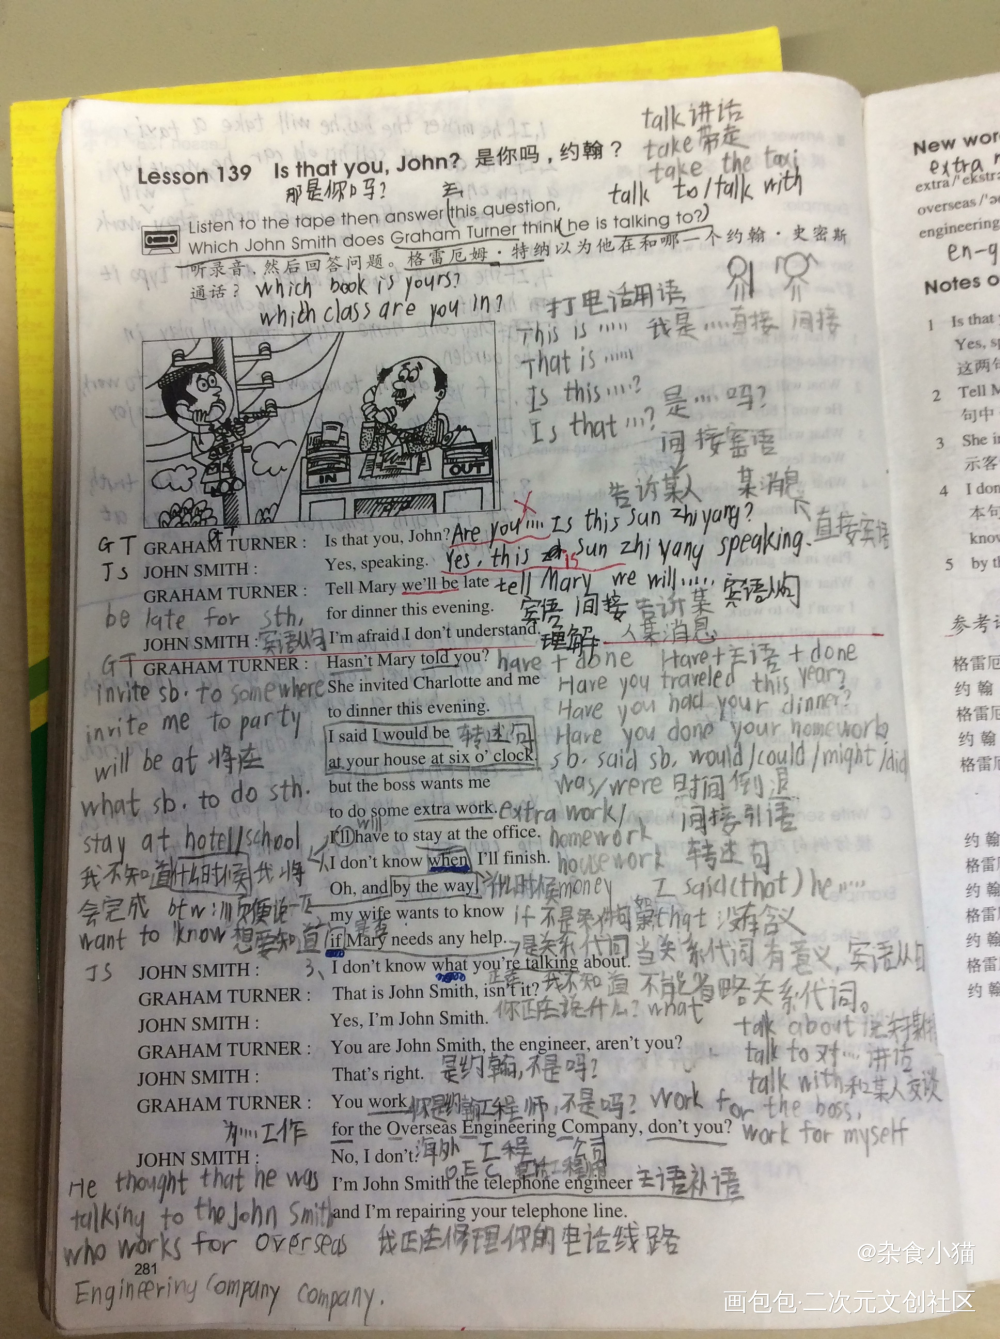 talk 讲话
take 带走
take the taxi
talk to/talk with
Lesson 139 Is that you, John? 是你吗，约翰？
那是你吗?
Listen to the tape then answer this question.
Which John Smith does Graham Turner think he is talking to?
听录音，然后回答问题。格雷厄姆·特纳以为他在和哪一个约翰·史密斯
通话？
which book is yours?
which class are you in?
打电话用语
This is ...... 我是......直接 间接
That is ......
Is this ....? 是....吗?
Is that ...?
间接宾语
告诉某人 某消息
直接宾语
IN
OUT
GT GRAHAM TURNER : Is that you, John? Are you .... Is this sun zhiyang?
JS JOHN SMITH : Yes, speaking. Yes, this is sun zhiyang speaking.
GRAHAM TURNER : Tell Mary we'll be late tell Mary we will...... 宾语从句
be late for sth, for dinner this evening. 宾语 间接 告诉某
JOHN SMITH : 宾语从句 I'm afraid I don't understand. 理解 人某消息
GT GRAHAM TURNER : Hasn't Mary told you? have + done Have+主语+done
invite sb. to somewhere She invited Charlotte and me Have you traveled this year?
invite me to party to dinner this evening. Have you had your dinner?
I said I would be 转述句 Have you done your homework
will be at 将在 at your house at six o' clock, sb. said sb. would/could/might/did
but the boss wants me was/were 时间倒退
what sb. to do sth. to do some extra work. extra work/ 间接引语
stay at hotel/school I'll have to stay at the office. homework
我不知道什么时候我将 I don't know when I'll finish. housework 转述句
Oh, and by the way, 什么时候 money I said(that)he....
会完成 btw:顺便说一下 my wife wants to know if 不是条件句 that 没有含义
want to know 想要知道 if Mary needs any help. 是关系代词 当关系代词有意义,宾语从句
JS JOHN SMITH : 3、I don't know what you're talking about. 我不知道 不能省略关系代词。
GRAHAM TURNER : That is John Smith, isn't it? 你正在说什么? what
JOHN SMITH : Yes, I'm John Smith. talk about
GRAHAM TURNER : You are John Smith, the engineer, aren't you? talk to 对... 讲话
JOHN SMITH : That's right. 是约翰,不是吗? talk with 和某人交谈
GRAHAM TURNER : You work 你是约翰工程师,不是吗? work for the boss,
为....工作 for the Overseas Engineering Company, don't you? work for myself
JOHN SMITH : No, I don't. 海外 工程 公司
O.E.C
He thought that he was I'm John Smith the telephone engineer 主语补语
talking to the John Smith and I'm repairing your telephone line.
who works for overseas 我正在修理你的电话线路
281
Engineering company company.
New wor
extra
extra/'ekstrə
overseas/
engineering
en-g
Notes o
1 Is that
Yes, sp
这两
2 Tell M
句中
3 She in
示客
4 I don
本句
know
5 by th
参考
格雷厄
约 翰
格雷厄
约 翰
格雷厄
约 翰
格雷厄
约 翰
格雷厄
约 翰
格雷厄
约 翰
@杂食小猫
画包包·二次元文创社区